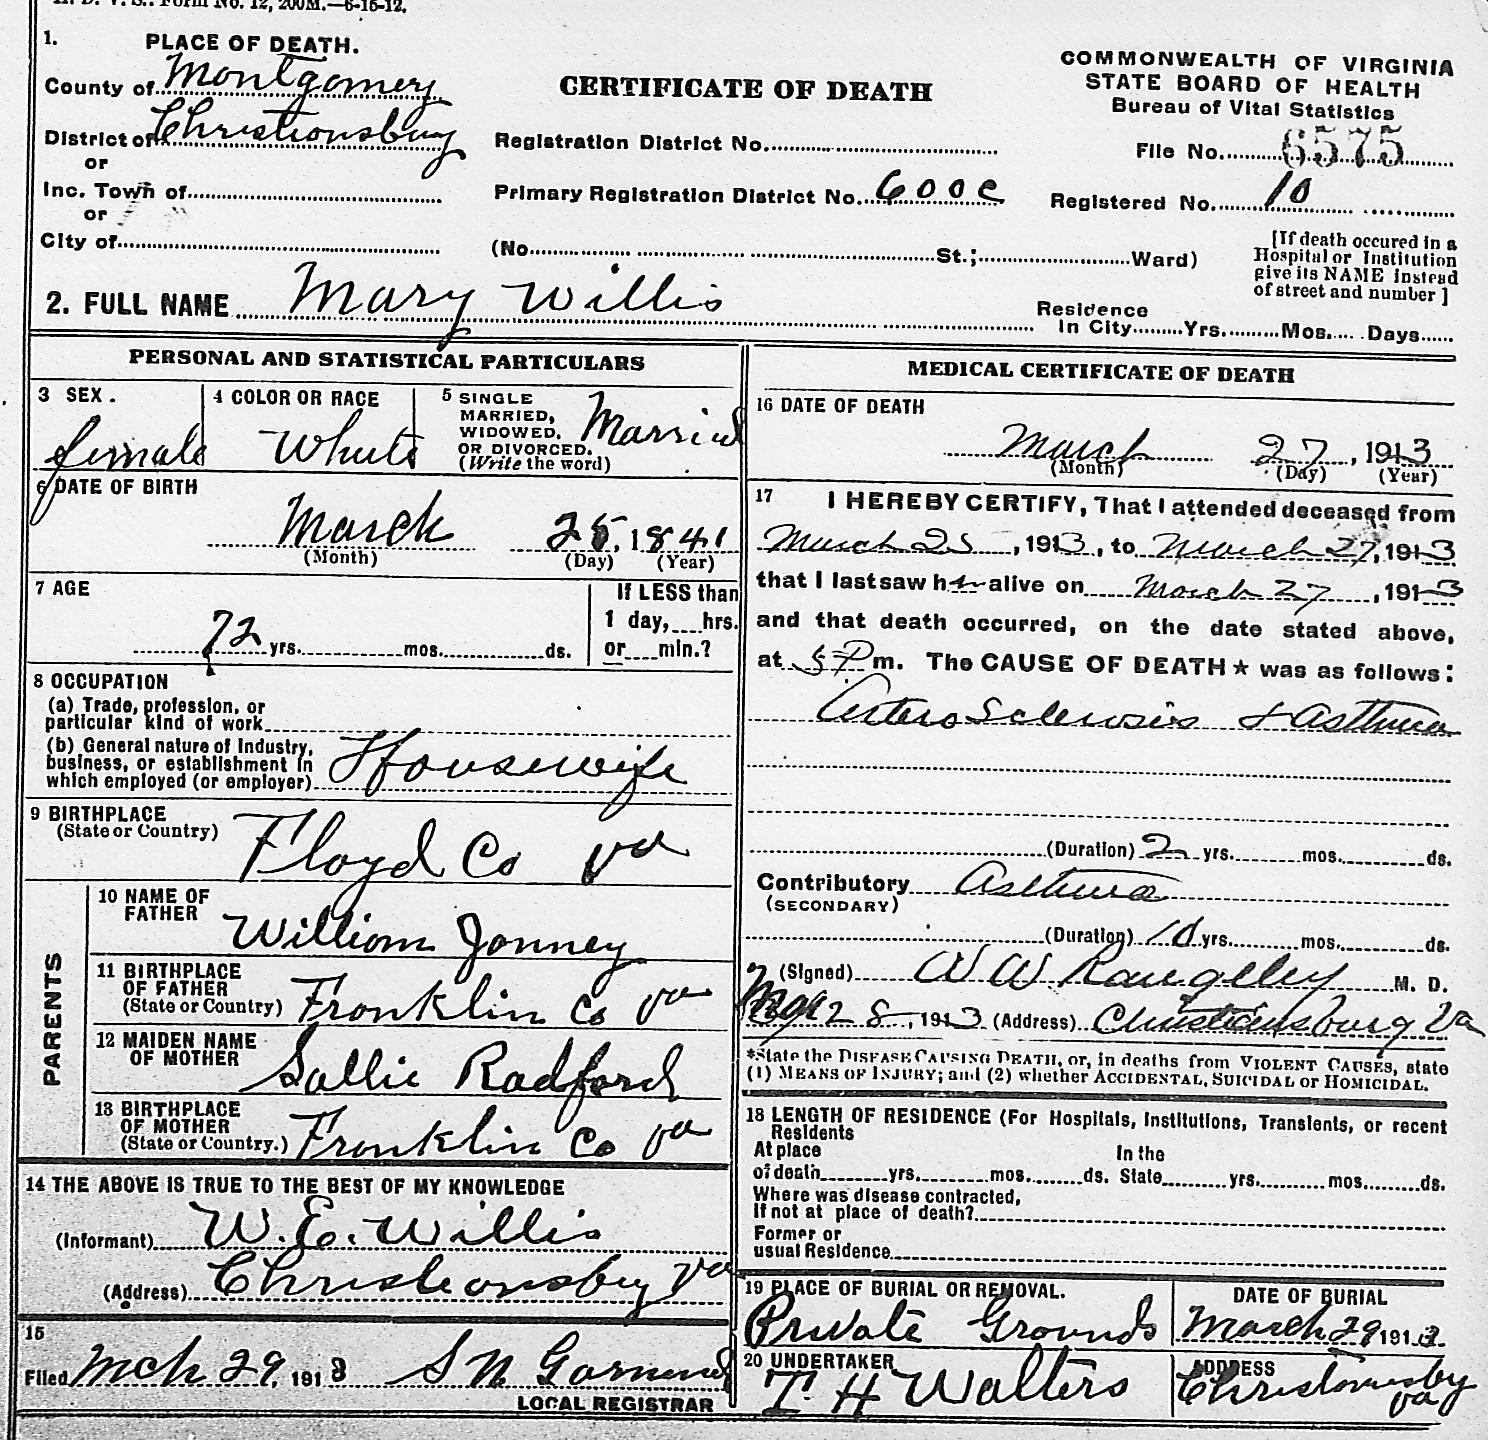 H. D. V. S.: Form No. 12, 200M.—6-15-12.
1. PLACE OF DEATH.
County of Montgomery
District of Christionsburg
or
Inc. Town of
or
City of
CERTIFICATE OF DEATH
Registration District No.
Primary Registration District No. 600c
(No. St.; Ward)
COMMONWEALTH OF VIRGINIA
STATE BOARD OF HEALTH
Bureau of Vital Statistics
File No. 6575
Registered No. 10
[If death occured in a
Hospital or Institution
give its NAME instead
of street and number ]
2. FULL NAME Mary Willis
Residence
In City Yrs. Mos. Days
PERSONAL AND STATISTICAL PARTICULARS
3 SEX.
female
4 COLOR OR RACE
White
5 SINGLE
MARRIED,
WIDOWED,
OR DIVORCED.
(Write the word)
Married
6 DATE OF BIRTH
March 25, 1841
(Month) (Day) (Year)
7 AGE
72 yrs. mos. ds.
If LESS than
1 day, hrs.
or min.?
8 OCCUPATION
(a) Trade, profession, or
particular kind of work
(b) General nature of Industry,
business, or establishment in
which employed (or employer) Housewife
9 BIRTHPLACE
(State or Country) Floyd Co Va
PARENTS
10 NAME OF
FATHER William Jonney
11 BIRTHPLACE
OF FATHER
(State or Country) Fronklin Co Va
12 MAIDEN NAME
OF MOTHER Sallie Radford
13 BIRTHPLACE
OF MOTHER
(State or Country.) Fronklin Co Va
14 THE ABOVE IS TRUE TO THE BEST OF MY KNOWLEDGE
(Informant) W. E. Willis
(Address) Christionsburg Va
15
Filed Mch 29, 1913 S N
LOCAL REGISTRAR
MEDICAL CERTIFICATE OF DEATH
16 DATE OF DEATH
March 27, 1913
(Month) (Day) (Year)
17 I HEREBY CERTIFY, That I attended deceased from
March 25, 1913, to March 27, 1913
that I last saw her alive on March 27, 1913
and that death occurred, on the date stated above,
at 5 P m. The CAUSE OF DEATH★ was as follows:
Arterio Sclerosis & Asthma
(Duration) 2 yrs. mos. ds.
Contributory Asthma
(SECONDARY)
(Duration) 10 yrs. mos. ds.
(Signed) W W Rangeley M. D.
28, 1913 (Address) Christiansburg Va
*State the DISEASE CAUSING DEATH, or, in deaths from VIOLENT CAUSES, state
(1) MEANS OF INJURY; and (2) whether ACCIDENTAL, SUICIDAL or HOMICIDAL.
18 LENGTH OF RESIDENCE (For Hospitals, Institutions, Transients, or recent
Residents
At place In the
of death yrs. mos. ds. State yrs. mos. ds.
Where was disease contracted,
If not at place of death?
Former or
usual Residence
19 PLACE OF BURIAL OR REMOVAL.
Private Grounds
DATE OF BURIAL
March 29 1913
20 UNDERTAKER
T. H Walters
ADDRESS
Christionsburg
Va